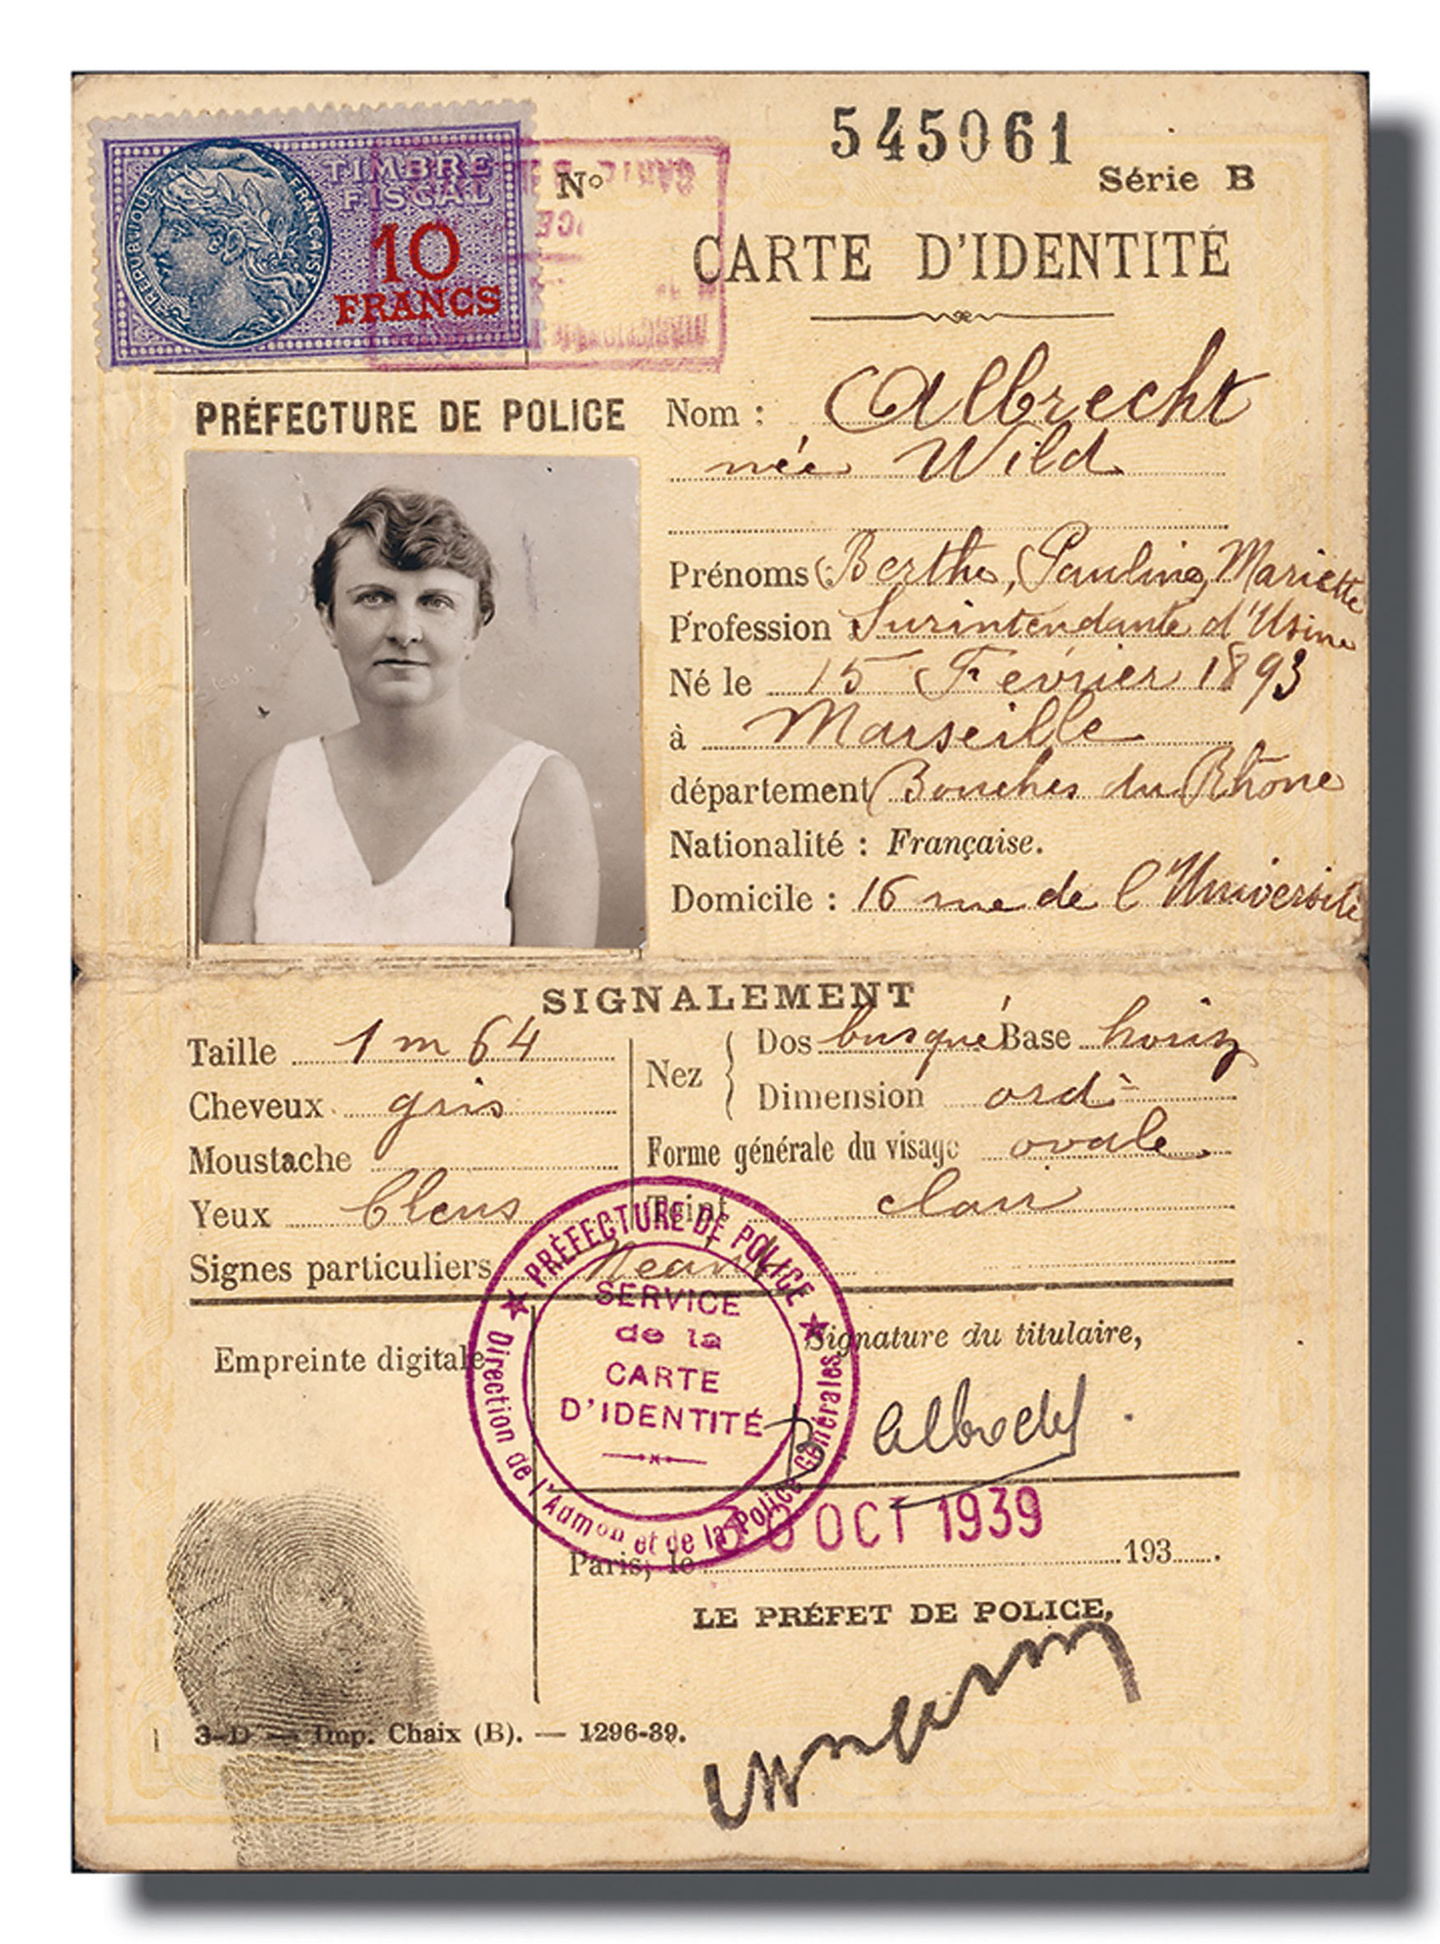 545061
N° Série B
TIMBRE
FISCAL
10
FRANCS
RÉPUBLIQUE FRANÇAISE
CARTE D'IDENTITÉ
PRÉFECTURE DE POLICE
Nom : Albrecht
née Wild
Prénoms Berthe, Pauline, Mariette
Profession Surintendante d'Usine
Né le 15 Février 1893
à Marseille
département Bouches du Rhône
Nationalité : Française.
Domicile : 16 rue de l'Université
SIGNALEMENT
Taille 1 m 64
Cheveux gris
Moustache
Yeux bleus
Nez Dos busqué Base horiz
Dimension ord
Forme générale du visage ovale
Teint clair
Signes particuliers Néant
PRÉFECTURE DE POLICE
Direction de l'Admon et de la Police Générales
SERVICE
de la
CARTE
D'IDENTITÉ
Empreinte digitale
Signature du titulaire,
B Albrecht
30 OCT 1939
Paris, le 193 .
LE PRÉFET DE POLICE,
3-D — Imp. Chaix (B). — 1296-39.